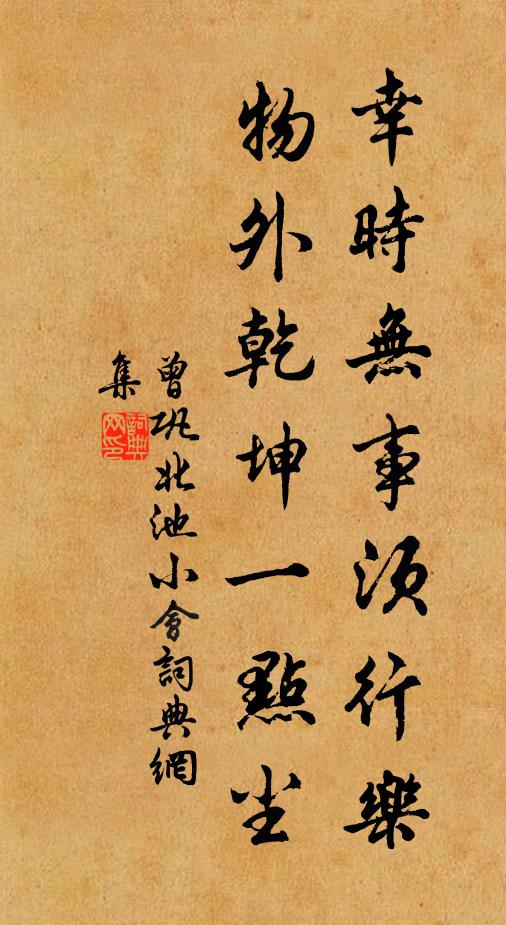 幸時無事須行樂
物外乾坤一點尘
曾巩北池小會詞典網
集
詞典
网印